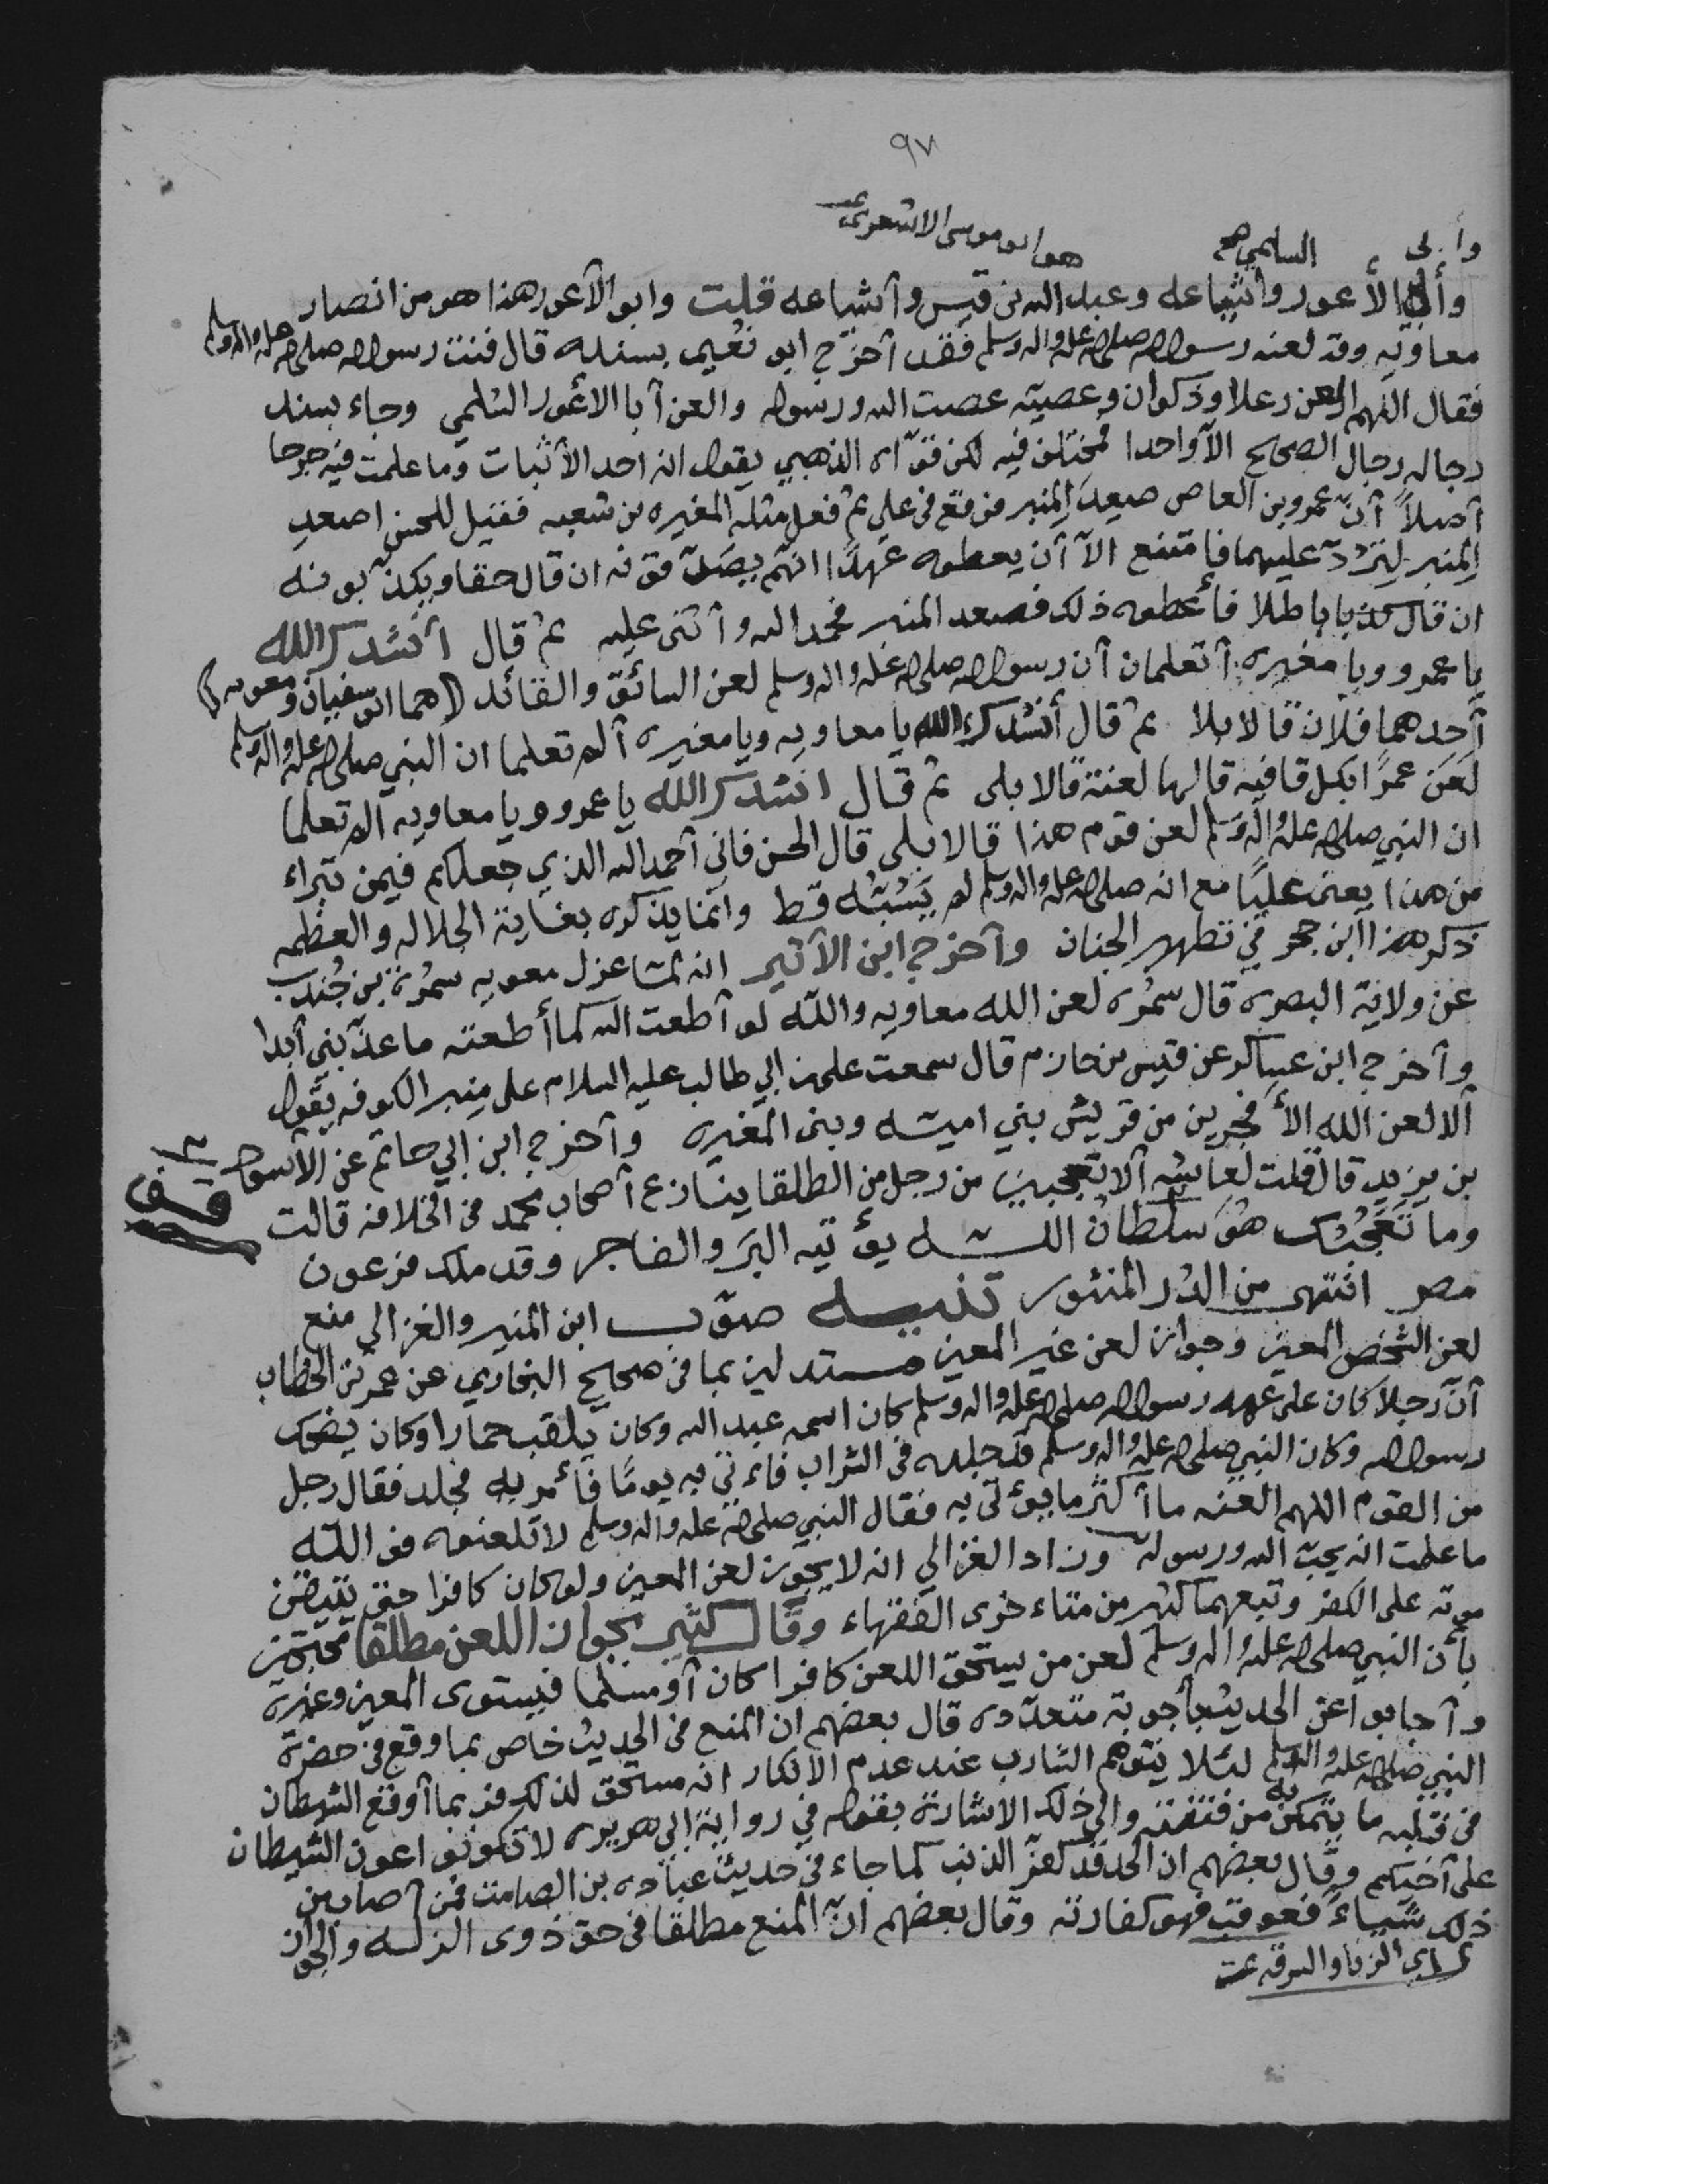 ٩٧
وأبى السلمي صح هو ابو موسى الاشعري
وأبي الأعور واشياعه وعبد الله بن قيس وأشياعه قلت وابو الأعور هذا هو من انصار
معاويه وقد لعنه رسول الله صلى الله عليه واله وسلم فقد أخرج ابو نعيم بسنده قال قنت رسول الله صلى الله عليه واله وسلم
فقال اللهم العن رعلا وذكوان وعصيّه عصت الله ورسوله والعن أبا الأعور السلمي وجاء بسند
رجاله رجال الصحيح الّا واحدا فمختلف فيه لكن قوّاه الذهبي بقوله انه احد الأثبات وما علمت فيه جرحا
أصلاً أنّ عمرو بن العاص صعِدَ المِنبر فوقع في علي ثم فعل مثله المغيره بن شعبه فقيل للحسن اصعد
المِنبر لِتَرُدّ عليهما فامتنع الّا أن يعطوه عهدًا انهم يصَدّقونه ان قال حقا ويكذّبونه
ان قال باطلا فأعطوه ذلك فصعد المنبر فحمد الله وأثنى عليه ثم قال أنشدك الله
يا عمرو ويا مغيره أتعلمان أن رسول الله صلى الله عليه واله وسلم لعن السائق والقائد هما ابو سفيان ومعويه
أحدهما فلان قالا بلا ثم قال أنشدك الله يا معاويه ويا مغيره ألم تعلما ان النبي صلى الله عليه واله وسلم
لعَن عمرًا بكل قافيه قالها لعنة قالا بلى ثم قال انشدك الله يا عمرو ويا معاويه الم تعلما
ان النبي صلى الله عليه واله وسلم لعن قوم هذا قالا بلى قال الحسن فاني أحمد الله الذي جعلكم فيمن تبراء
من هذا يعنى عليًا مع انه صلى الله عليه واله وسلم لم يَسُبّه قط وانما يذكره بغاية الجلاله والعظمه
ذكر هذا ابن حجر في تطهير الجنان وأخرج ابن الأثير انه لمّا عزل معويه سمُرة بن جُندب
عن ولاية البصره قال سمُره لعن الله معاويه واللّه لو أطعت الله كما أطعته ما عذّبني أبدا
وأخرج ابن عساكر عن قيس بن حازم قال سمعت علي بن ابي طالب عليه السلام على منبر الكوفه يقول
ألا لعن الله الأفجرين من قريش بني اميّه وبنى المغيره وأخرج ابن ابي حاتم عن الأسود
قف
بن يزيد قال قلت لعايشه ألا تعجبين من رجل من الطلقا ينازع أصحاب محمد في الخلافه قالت
وما تَعَجُّبك هُوَ سلطان اللّه يؤتيه البَر والفاجر وقد ملك فرعون
مصر انتهى من الدُر المنثور تنبيه صوّب ابن المنير والغزالي منع
لعن الشخص المعين وجواز لعن غير المعين مستدلين بما في صحيح البخاري عن عمر بن الخطاب
أن رجلا كان على عهد رسول الله صلى الله عليه واله وسلم كان اسمه عبد الله وكان يلقب حمارا وكان يضحك
رسول الله وكان النبي صلى الله عليه واله وسلم قد جلده في الشراب فاءتي به يومًا فأمر به فجلد فقال رجل
من القوم اللهم العنه ما أكثر ما يؤتى به فقال النبي صلى الله عليه واله وسلم لا تلعنوه فو اللّه
ما علمت انه يحبّ الله ورسوله وزاد الغزالي انه لا يجوز لعن المعين ولو كان كافرا حتى نتيقن
موته على الكفر وتبعهما كثير من متاءخرى الفقهاء وقال كثير بجواز اللعن مطلقا محتجين
بأن النبي صلى الله عليه واله وسلم لعن من يستحق اللعن كافرا كان أو مسلما فيستوى المعين وغيره
وأجابوا عن الحديث بأجوبة متعدّده قال بعضهم ان المنع في الحديث خاص بما وقع في حضرة
النبي صلى الله عليه واله وسلم لئلا يتوهم الشارب عند عدم الانكار انه مستحق لذلك فربما أوقع الشيطان
في قلبه ما يتمكن به من فتنته والى ذلك الاشارة بقوله في رواية ابي هريره لا تكونوا عون الشيطان
على أخيكم وقال بعضهم ان الحد قد كفّر الذنب كما جاء في حديث عباده بن الصامت فمن أصاب من
ذلك شياءً فعوقب فهو كفارته وقال بعضهم انّ المنع مطلقا في حق ذوى الزله والجواز
اى الزنا والسرقه تمت